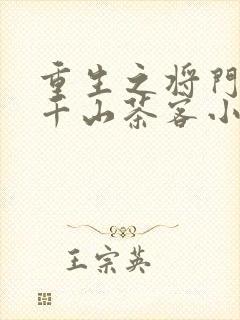 重生之将门
千山茶客小
王宗英